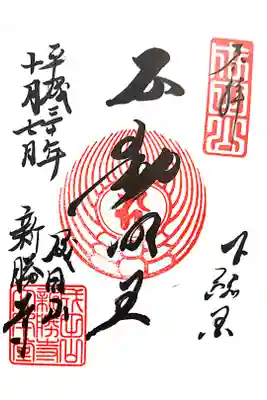 奉拝
下総国
不動明王
成田山
新勝寺
平成三十年
十月七日
成田山
新勝寺